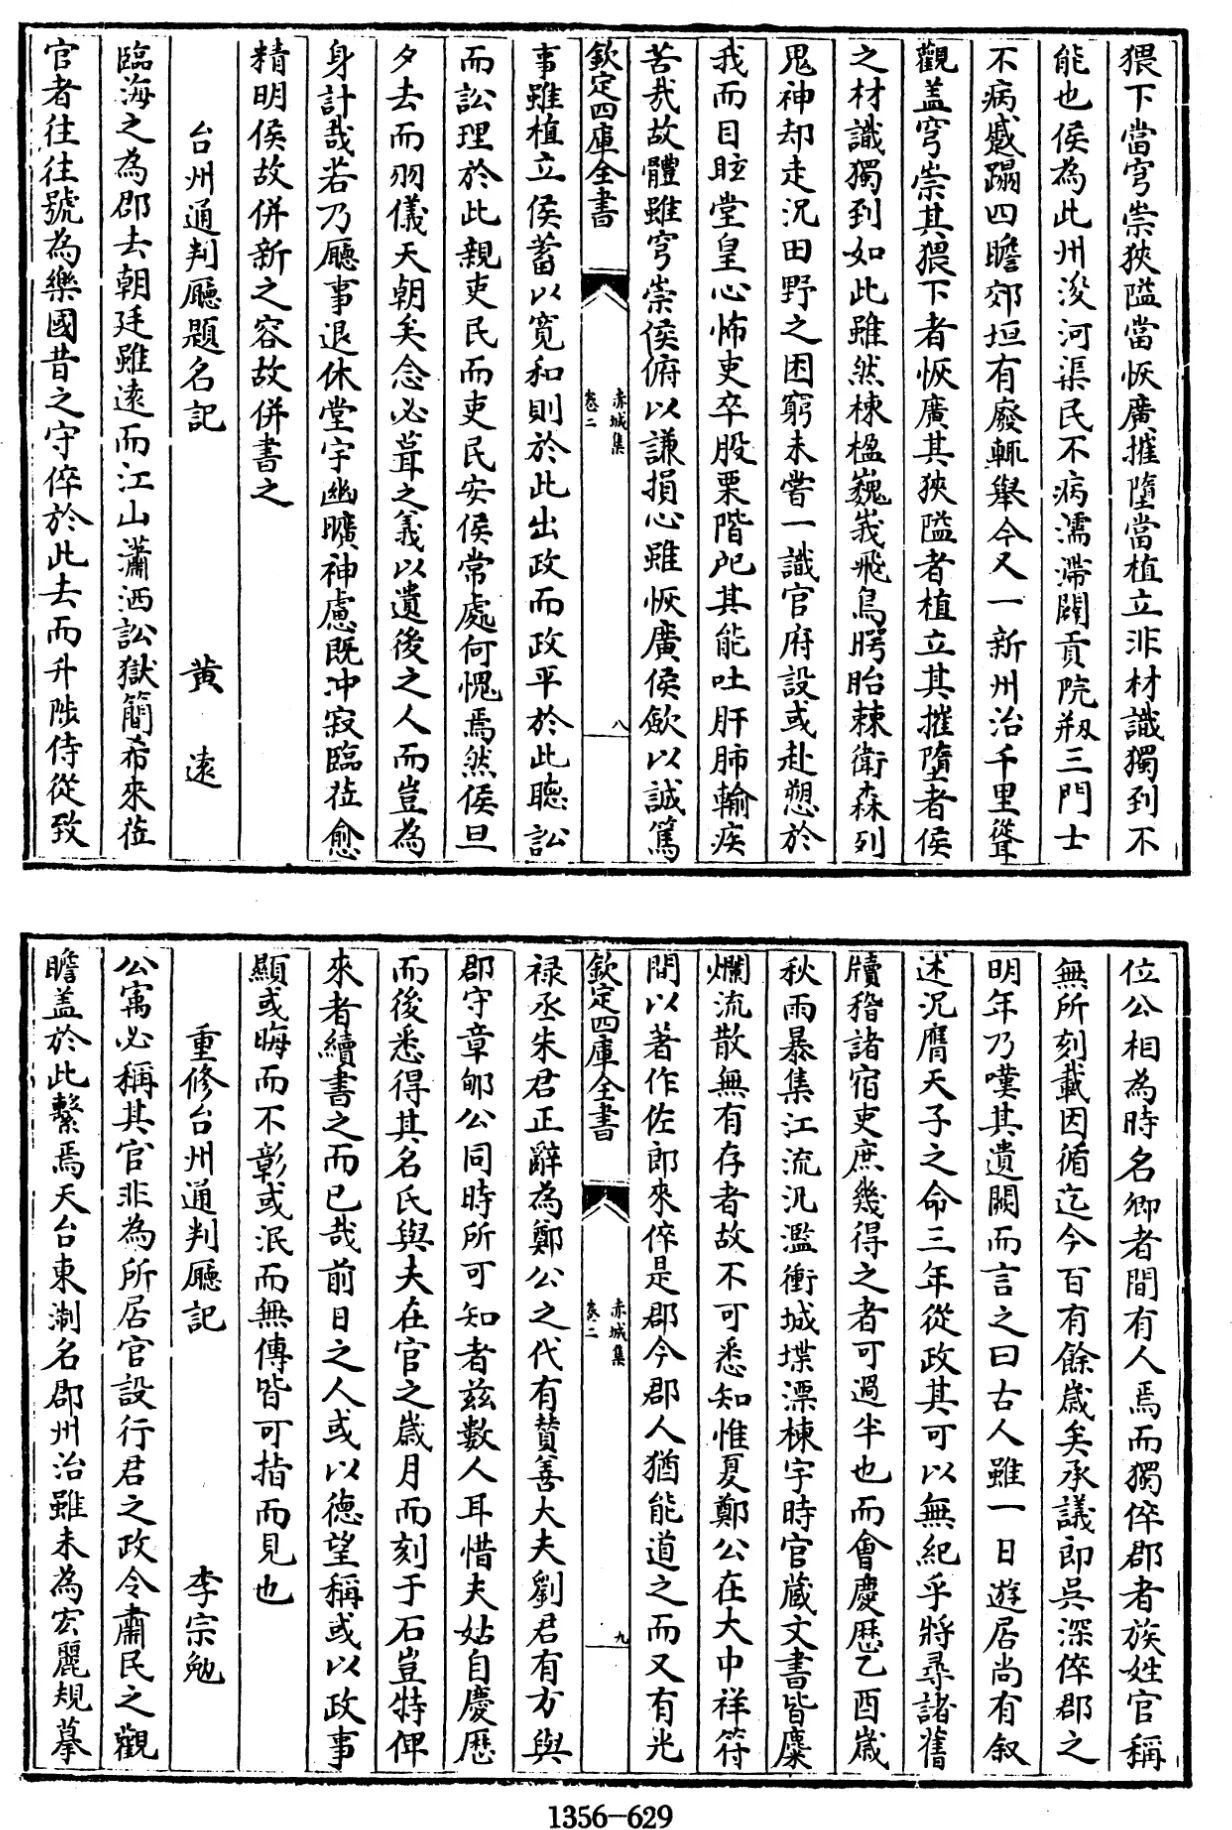 猥下當穹崇狹隘當恢廣摧墮當植立非材識獨到不
能也侯為此州浚河渠民不病濡滯闢貢院剏三門士
不病蹙蹋四瞻郊垣有廢輒舉今又一新州治千里聳
觀盖穹崇其猥下者恢廣其狹隘者植立其摧墮者侯
之材識獨到如此雖然棟楹巍峩飛鳥腭眙棘衛森列
鬼神却走況田野之困窮未嘗一識官府設或赴愬於
我而目眩堂皇心怖吏卒股栗階戺其能吐肝肺輸疾
苦哉故體雖穹崇侯俯以謙損心雖恢廣侯歛以誠篤
欽定四庫全書
赤城集
卷二
八
事雖植立侯蓄以寛和則於此出政而政平於此聴訟
而訟理於此親吏民而吏民安侯常處何愧焉然侯旦
夕去而羽儀天朝矣念必葺之義以遺後之人而豈為
身計哉若乃廳事退休堂宇幽曠神慮既冲寂臨莅愈
精明侯故併新之容故併書之
台州通判廳題名記
黄逺
臨海之為郡去朝廷雖逺而江山瀟洒訟獄簡希來莅
官者往往號為樂國昔之守倅於此去而升陟侍從致
位公相為時名卿者間有人焉而獨倅郡者族姓官稱
無所刻載因循迄今百有餘歳矣承議郎呉深倅郡之
明年乃嘆其遺闕而言之曰古人雖一日遊居尚有叙
述況膺天子之命三年從政其可以無紀乎將尋諸舊
牘稽諸宿吏庶幾得之者可過半也而會慶歴乙酉歳
秋雨暴集江流汎濫衝城堞漂棟宇時官藏文書皆麋
爛流散無有存者故不可悉知惟夏鄭公在大中祥符
間以著作佐郎來倅是郡今郡人猶能道之而又有光
欽定四庫全書
赤城集
卷二
九
禄丞朱君正辭為鄭公之代有賛善大夫劉君有方與
郡守章郇公同時所可知者兹數人耳惜夫姑自慶歴
而後悉得其名氏與夫在官之歳月而刻于石豈特俾
來者續書之而已哉前日之人或以徳望稱或以政事
顯或晦而不彰或泯而無傳皆可指而見也
重修台州通判廳記
李宗勉
公寓必稱其官非為所居官設行君之政令肅民之觀
瞻盖於此繫焉天台東淛名郡州治雖未為宏麗規摹
1356-629